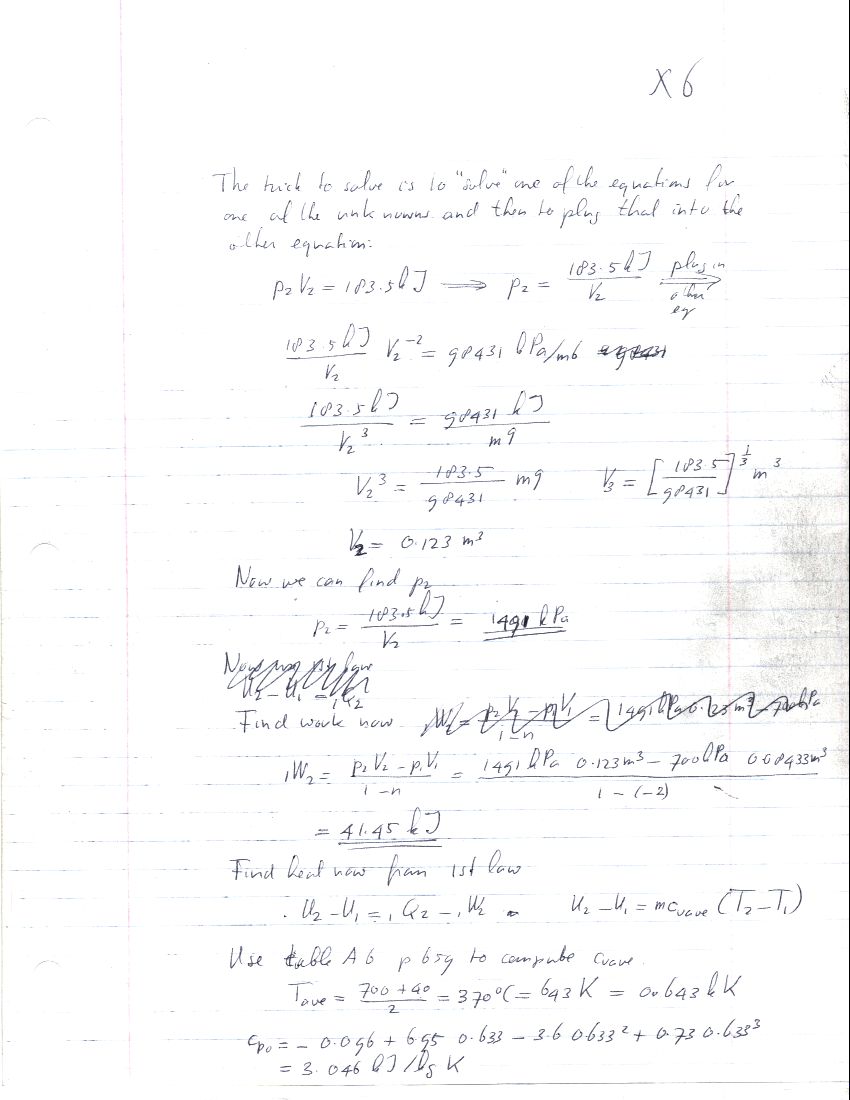 X 6
The trick to solve is to "solve" one of the equations for
one of the unknowns and then to plug that into the
other equation:
P₂V₂ = 183.5 kJ ⟹ P₂ = 183.5 kJ / V₂ plug in other eq ⟹
183.5 kJ / V₂ V₂⁻² = 98431 kPa/m6
183.5 kJ / V₂³ = 98431 kJ / m9
V₂³ = 183.5 / 98431 m9 V₃ = [183.5 / 98431]^(1/3) m³
V₂ = 0.123 m³
Now we can find P₂
P₂ = 183.5 kJ / V₂ = 1491 kPa
Find work now
₁W₂ = (P₂V₂ − P₁V₁) / (1 − n) = (1491 kPa 0.123 m³ − 700 kPa 0.08433 m³) / (1 − (−2))
= 41.45 kJ
Find heat now from 1st law
U₂ − U₁ = ₁Q₂ − ₁W₂ U₂ − U₁ = m c_vave (T₂ − T₁)
Use table A6 p 659 to compute cvave.
T_ave = (700 + 40) / 2 = 370°C = 643 K = 0.643 kK
c_p0 = − 0.096 + 6.95 0.633 − 3.6 0.633² + 0.73 0.633³
= 3.046 kJ/kg K